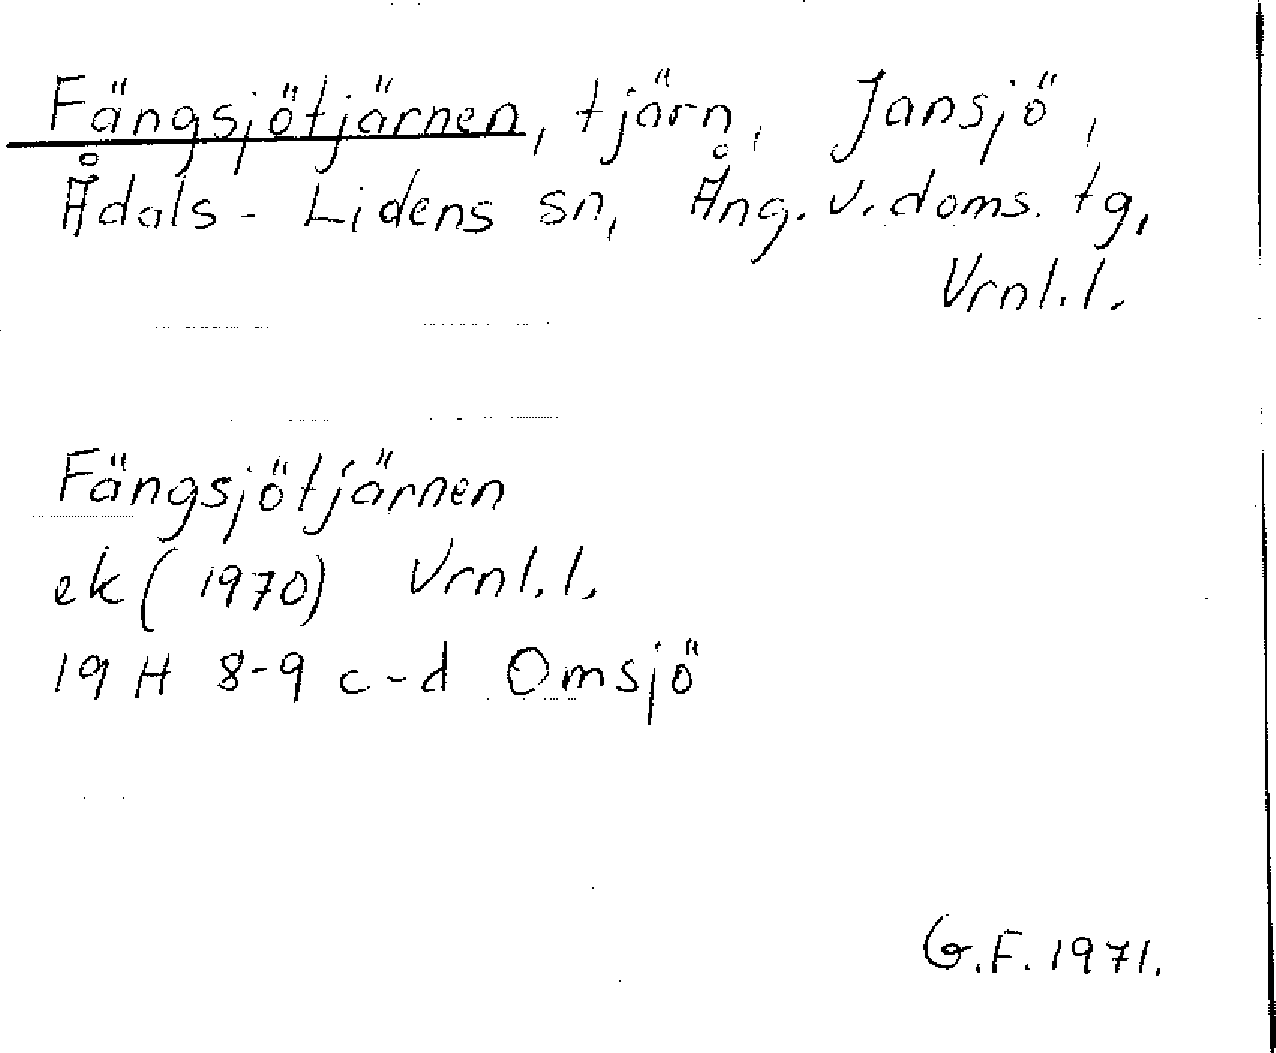 Fängsjötjärnen, tjärn, Jansjö,
Ådals-Lidens sn, Ång. v. doms. tg,
Vrnl.l.
Fängsjötjärnen
ek (1970) Vrnl.l.
19 H 8-9 c-d Omsjö
G.F. 1971.